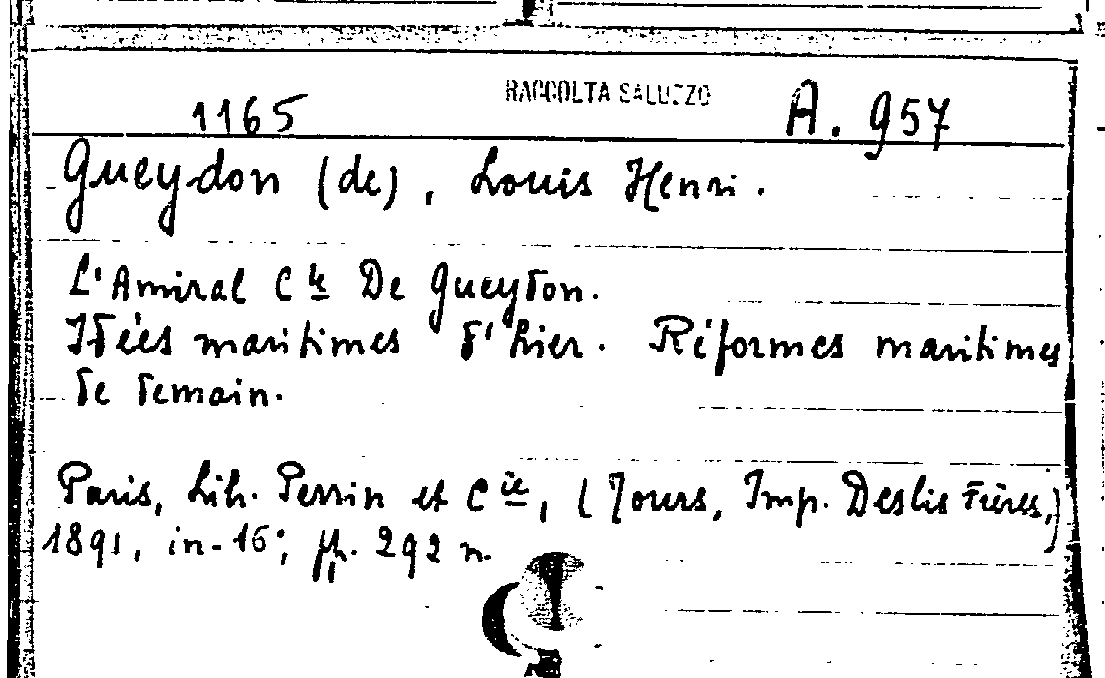 RACCOLTA SALUZZO
1165 A. 957
Gueydon (de), Louis Henri.
L'Amiral Cte De Gueydon.
Idées maritimes d'hier. Réformes maritimes
de demain.
Paris, Lib. Perrin et Cie, (Tours, Imp. Deslis Frères,)
1891, in-16°; pp. 292 n.